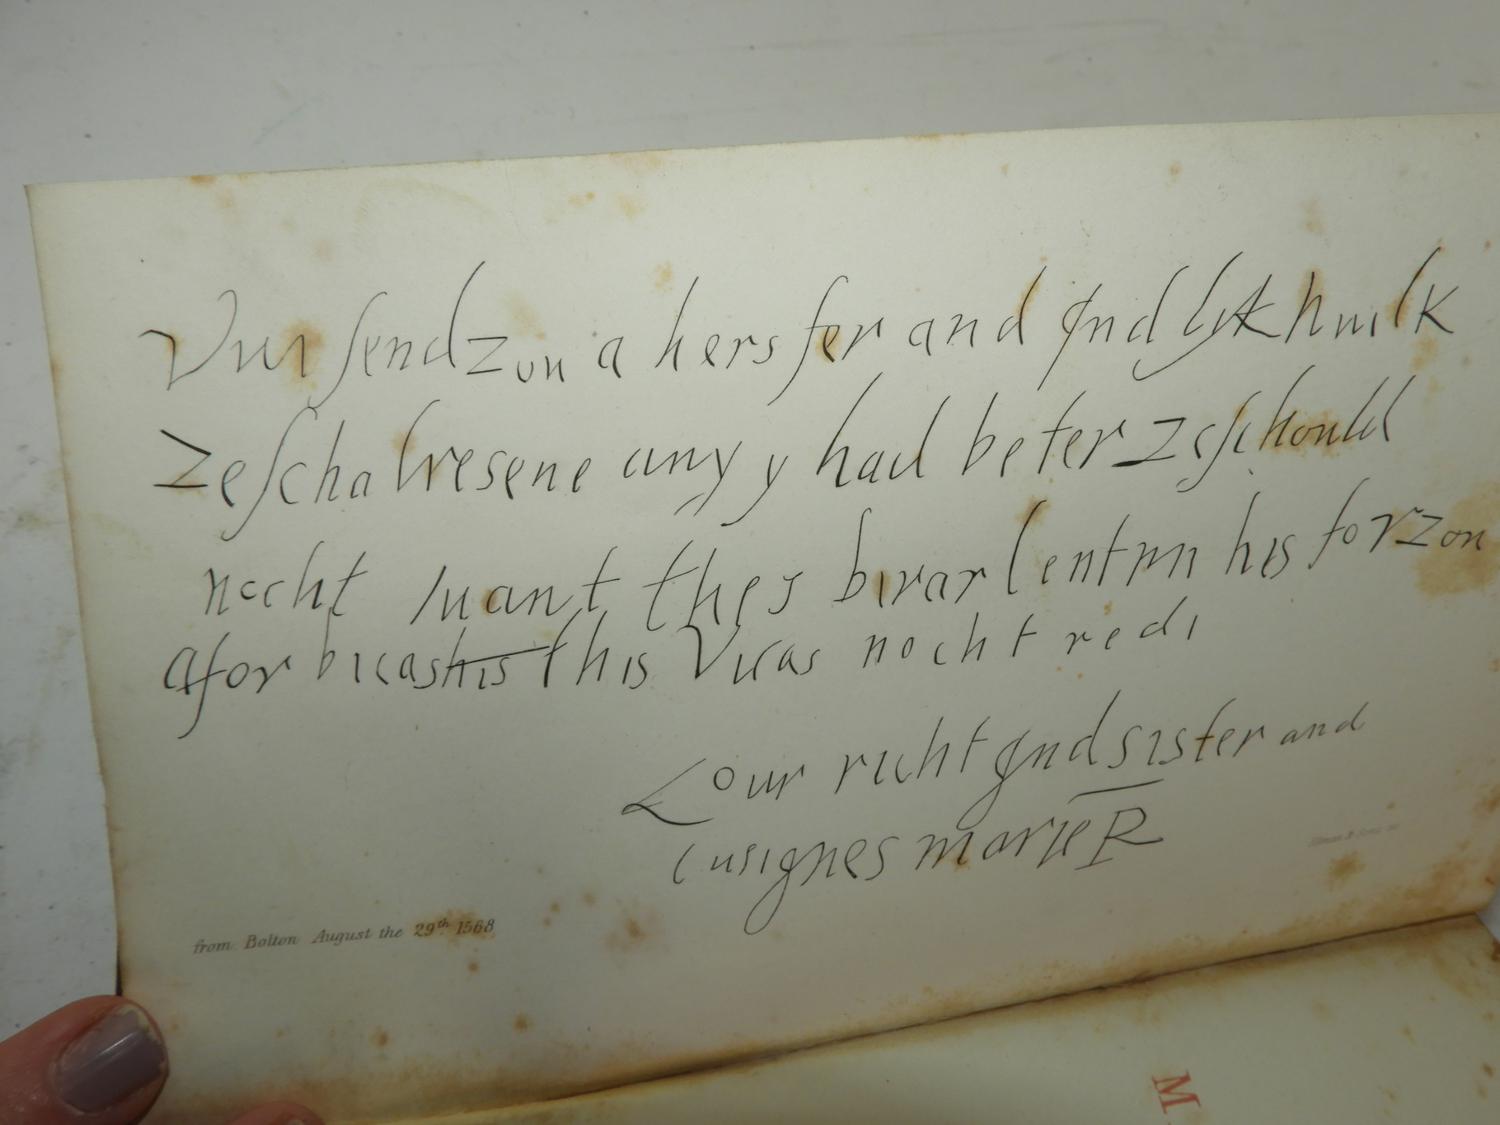 Vui send zou a hers fer and gud lyk huilk
ze schal resene any y had beter ze schould
nocht want thes birar lentnn his for zou
afor bicas his this Vicas nocht redi
Zour richt gud sister and
cusignes marie R
from Bolton August the 29th 1568
M